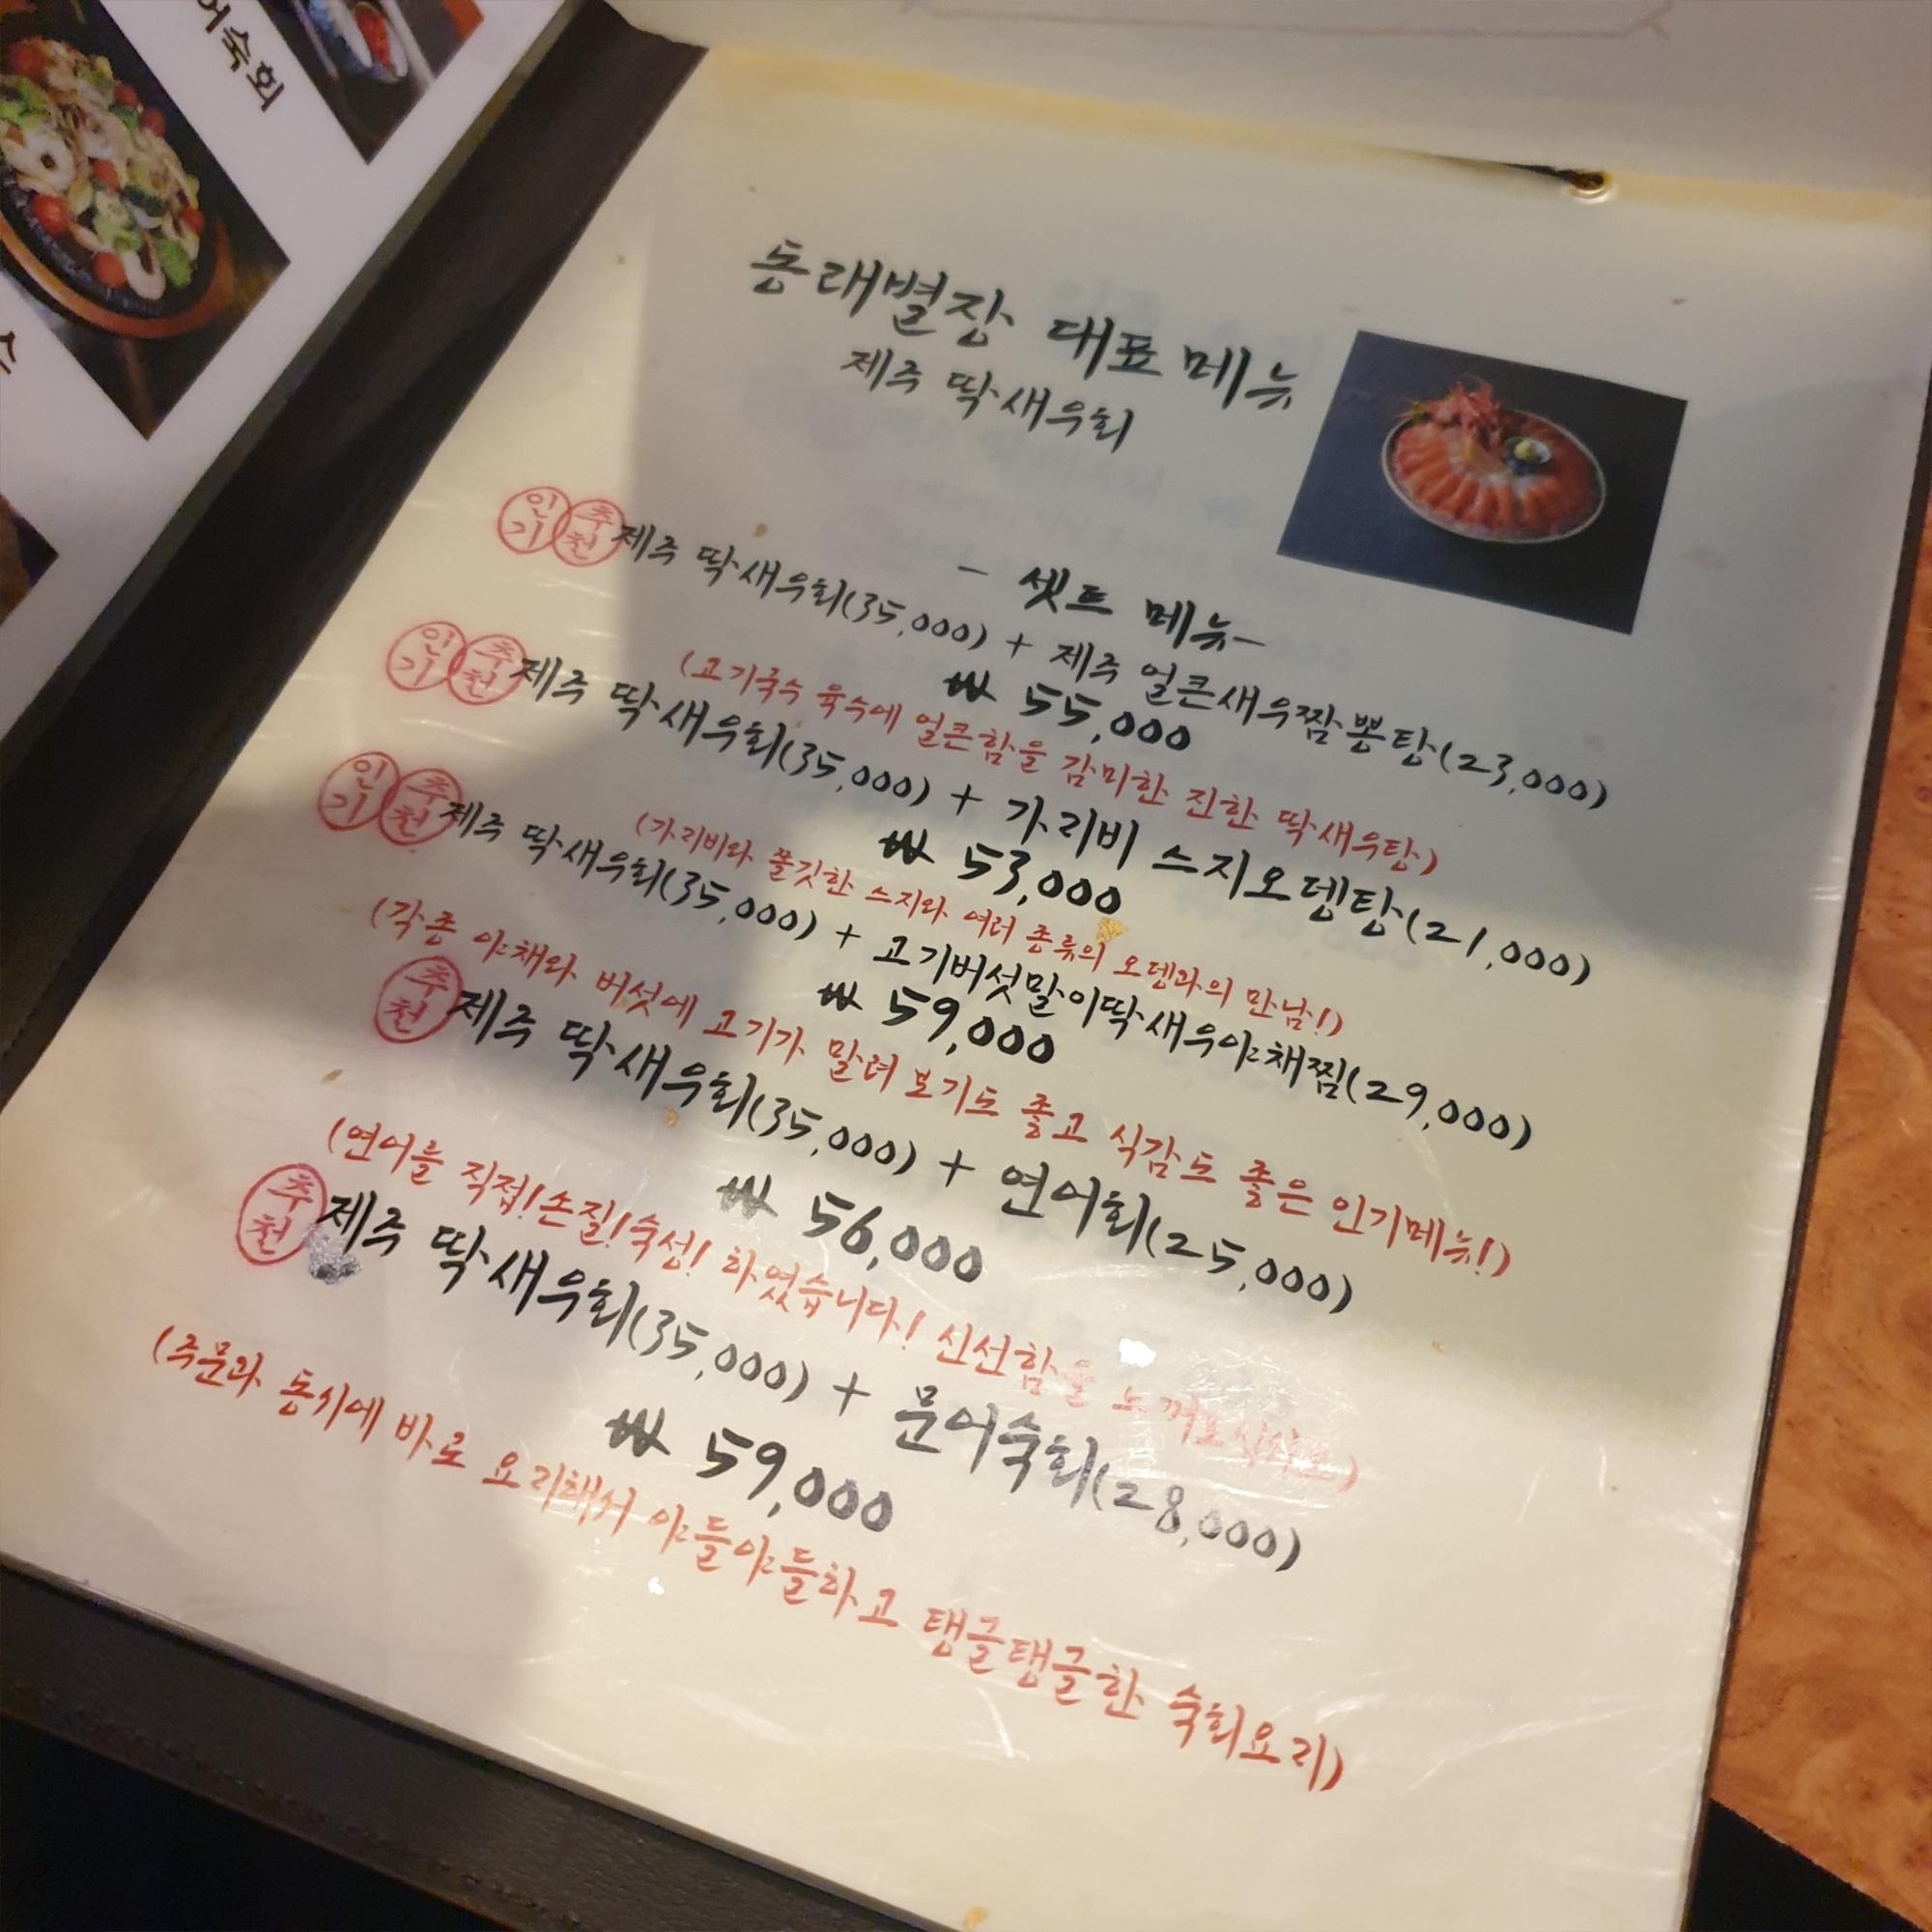 어숙회
동래별장 대표 메뉴
제주 딱새우회
- 셋트 메뉴 -
인기 추천 제주 딱새우회(35,000) + 제주 얼큰새우짬뽕탕(23,000)
₩ 55,000
(고기국수 육수에 얼큰함을 감미한 진한 딱새우탕)
인기 추천 제주 딱새우회(35,000) + 가리비 스지오뎅탕(21,000)
₩ 53,000
(가리비와 쫄깃한 스지와 여러 종류의 오뎅과의 만남!)
인기 추천 제주 딱새우회(35,000) + 고기버섯말이딱새우야채찜(29,000)
₩ 59,000
(각종 야채와 버섯에 고기가 말려 보기도 좋고 식감도 좋은 인기메뉴!)
추천 제주 딱새우회(35,000) + 연어회(25,000)
₩ 56,000
(연어를 직접!손질!숙성! 하였습니다! 신선함을 느껴보십시오)
추천 제주 딱새우회(35,000) + 문어숙회(28,000)
₩ 59,000
(주문과 동시에 바로 요리해서 야들야들하고 탱글탱글한 숙회요리)